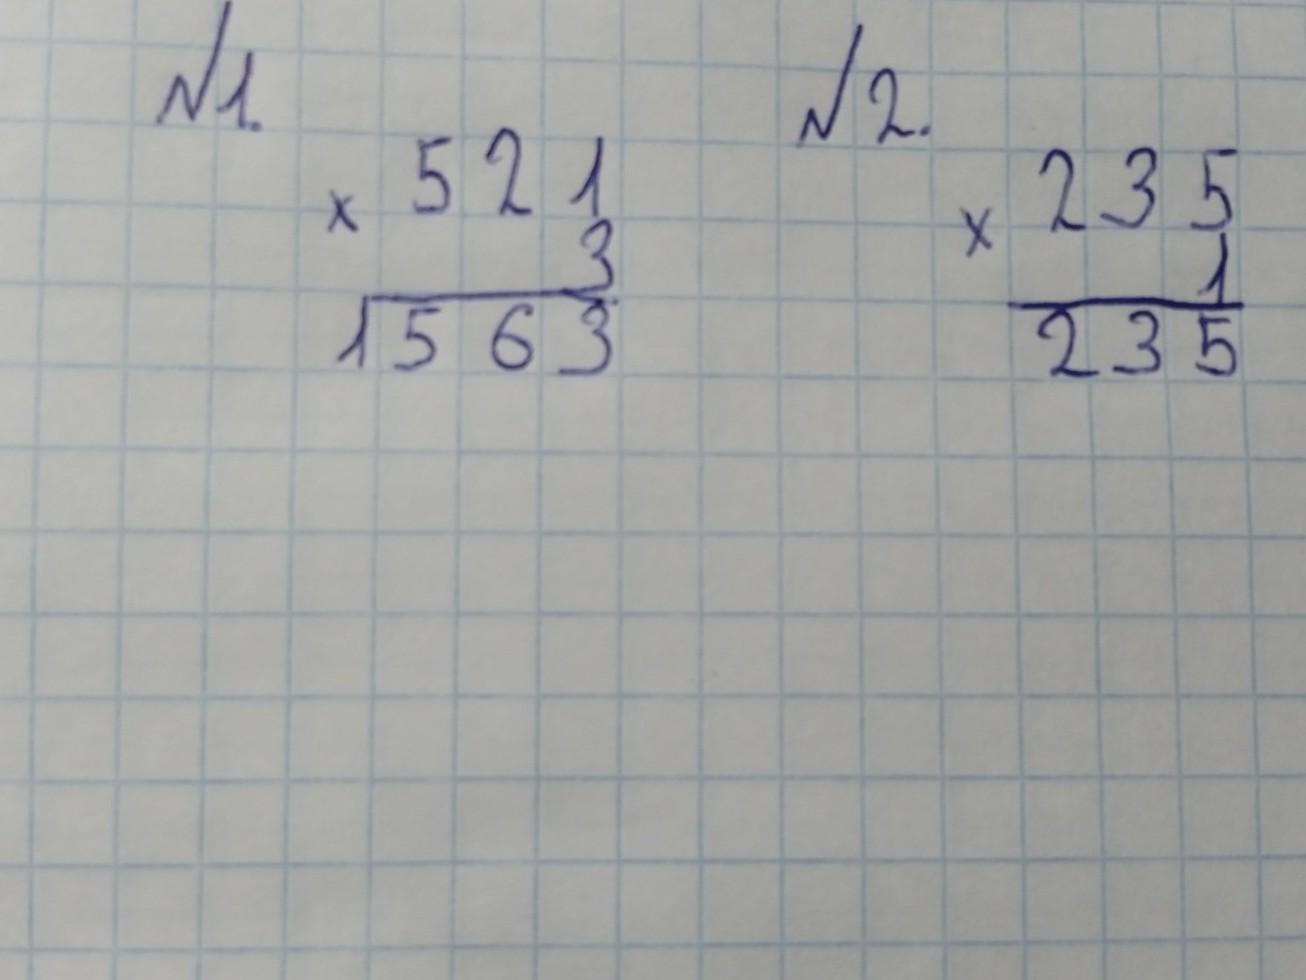 №1.
× 521
3
1563
№2.
× 235
1
235